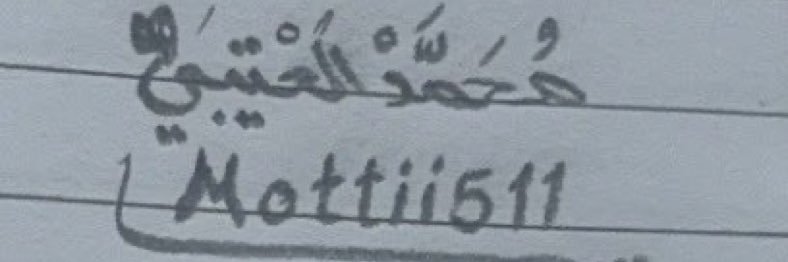 مُحَمَّدْ العْتيبيَ
Mottii511